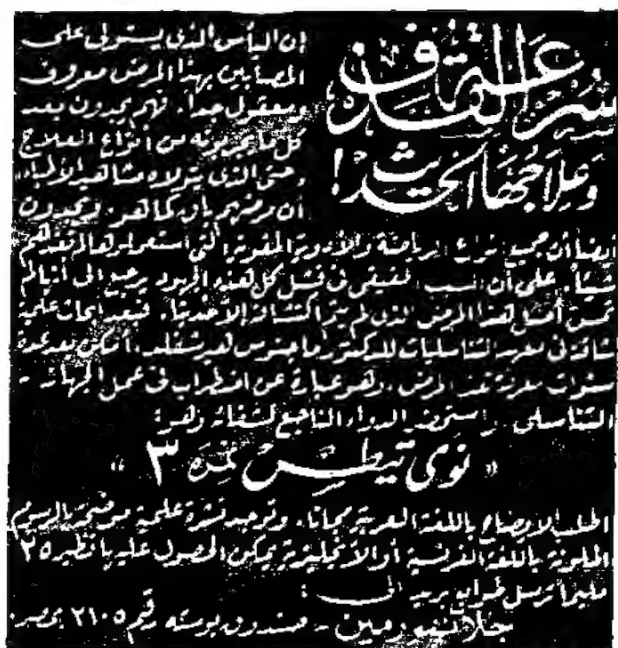 سرعة القذف
وعلاجها الحديث!
إن اليأس الذي يستولى على
المصابين بهذا المرض معروف
ومعقول جدا. فهم يجدون بعد
كل ما يجربونه من أنواع العلاج
وحتى الذي يتولاه مشاهير الأطباء
أن مرضهم باق كما هو. ويجدون
أيضا أن جميع أنواع الرياضة والأدوية المقوية التي استعملوها لم تفدهم
شيئا. على أن السبب الحقيقى فى فشل كل هذه الجهود يرجع الى أنها لم
تمس أصل هذا المرض الذى لم يتم اكتشافه إلا حديثا. فبعد ابحاث علمية
شاقة فى معهد التناسليات للدكتور ماجنوس هيرشفلد. أمكن بعد عدة
سنوات معرفة هذا المرض. وهو عبارة عن اضطراب فى عمل الجهاز -
التناسلى. واستحضر الدواء الناجع لشفائه وهو:
« نوى تيطس نمرة ٣ »
اطلب الإيضاح باللغة العربية مجانا. وتوجد نشرة علمية موضحة بالرسوم
الملونة باللغة الفرنسية أو الانجليزية يمكن الحصول عليها نظير ٢٥
مليما ترسل طوابع بريد الى:
جلانهورمين - صندوق بوسته رقم ٢١٠٥ بمصر.